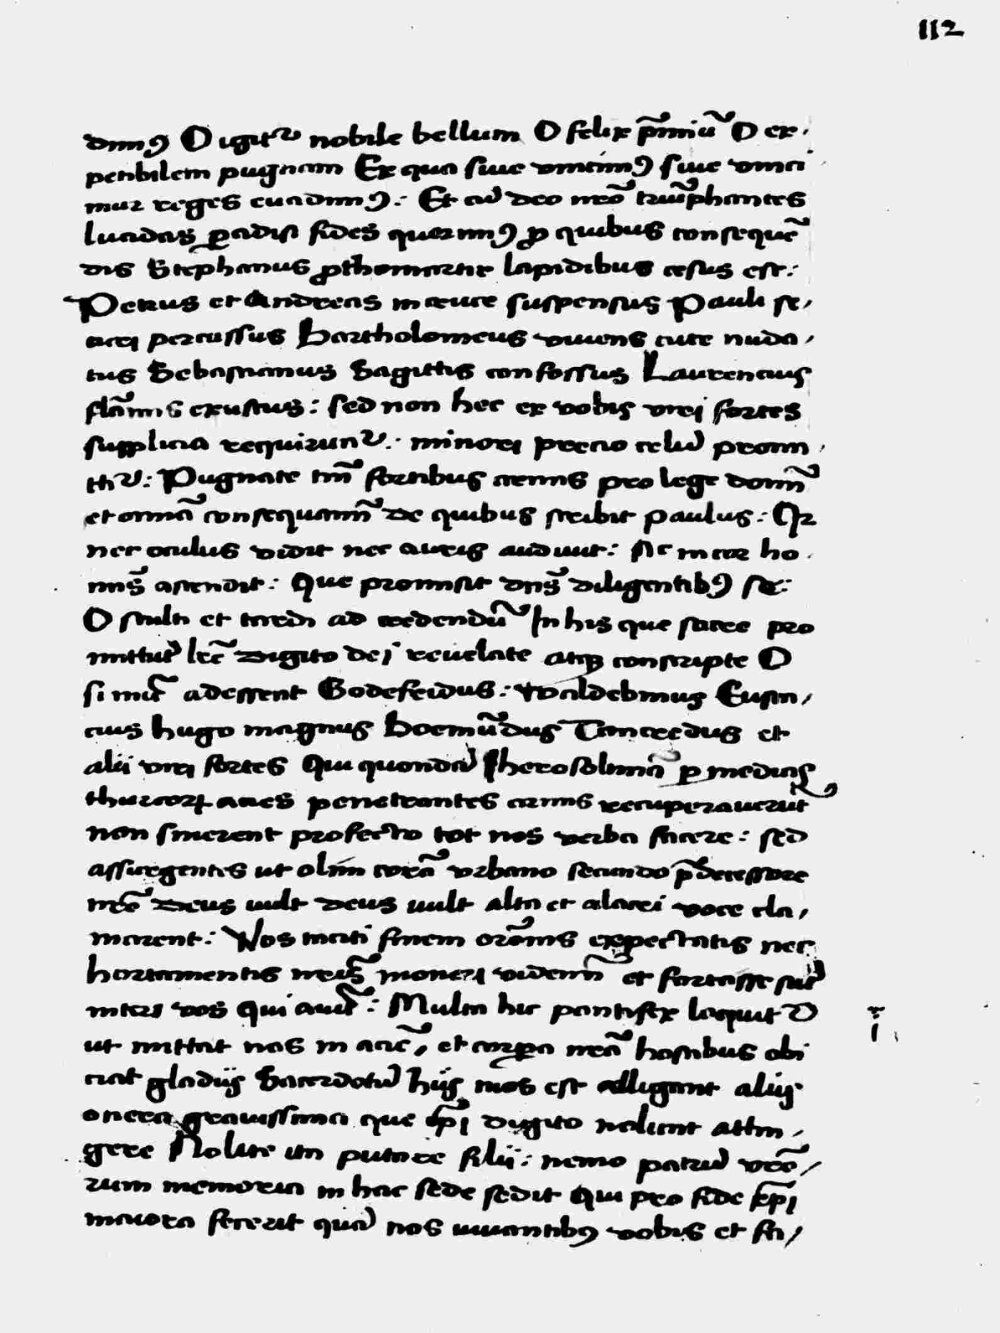 112
dimꝰ O igit᷑ nobile bellum O felix p̄miū O ex,
petibilem pugnam Ex qua siue vincimꝰ siue vinci
mur reges euadimꝰ: Et cū deo nr̄o triūphantes
lucidas ꝑadisi sedes querimꝰ ꝓ quibus conseque̅
dis Stephanus ꝓthomartir lapidibus cesus est:
Petrus et Andreas in cruce suspensus Pauli se,
curi percussus Bartholomeus viuens cute nuda,
tus Sebastianus Sagittis confossus Laurencius
flāmis exustus: sed non hec ex vobis viri fortes
supplicia requirunt᷑: minori precio celū promi
tit᷑: Pugnate tm̄ fortibus armis pro lege domī
et om̄ia consequamī de quibus scribit paulus: Qz
nec oculus vidit nec auris audiuit: Nec in cor ho
mīs ascendit: Que promisit dn̄s diligentibꝰ se:
O stulti et tardi ad credendū In his que sacre pro
mittūt lr̄e digito dei reuelate atqꝫ conscripte O
si nūc adessent Godefridus: Waldebinus Eusta,
cius hugo magnus Boemūdus Tancredus et
alij viri fortes Qui quondā Iherosolimā ꝑ medias
thurcoꝝ acies penetrantes armis recuperauerūt
non sinerent profecto tot nos verba facere: sed
assurgentes ut olim corā vrbano secundo p̄decessore
nr̄o Deus uult deus uult alta et alacri voce cla,
marent: Vos taciti finem orōnis expectatis nec
hortamentis nr̄is moueri videmī et fortasse sūt
inter vos qui aiūt: Multa hic pontifex loquit᷑
ut mittat nos in aciē, et corꝑa nr̄a hostibus obi
ciat gladijs Sacerdotū hijs mos est alligant alijs
onera grauissima que ip̄i digito nolunt attin,
gere Nolite ita putare filij: nemo patrū vr̄o,
rum memoria in hac sede sedit Qui pro fide xp̄i
maiora fecerit quā nos iuuantibꝰ vobis et fa,